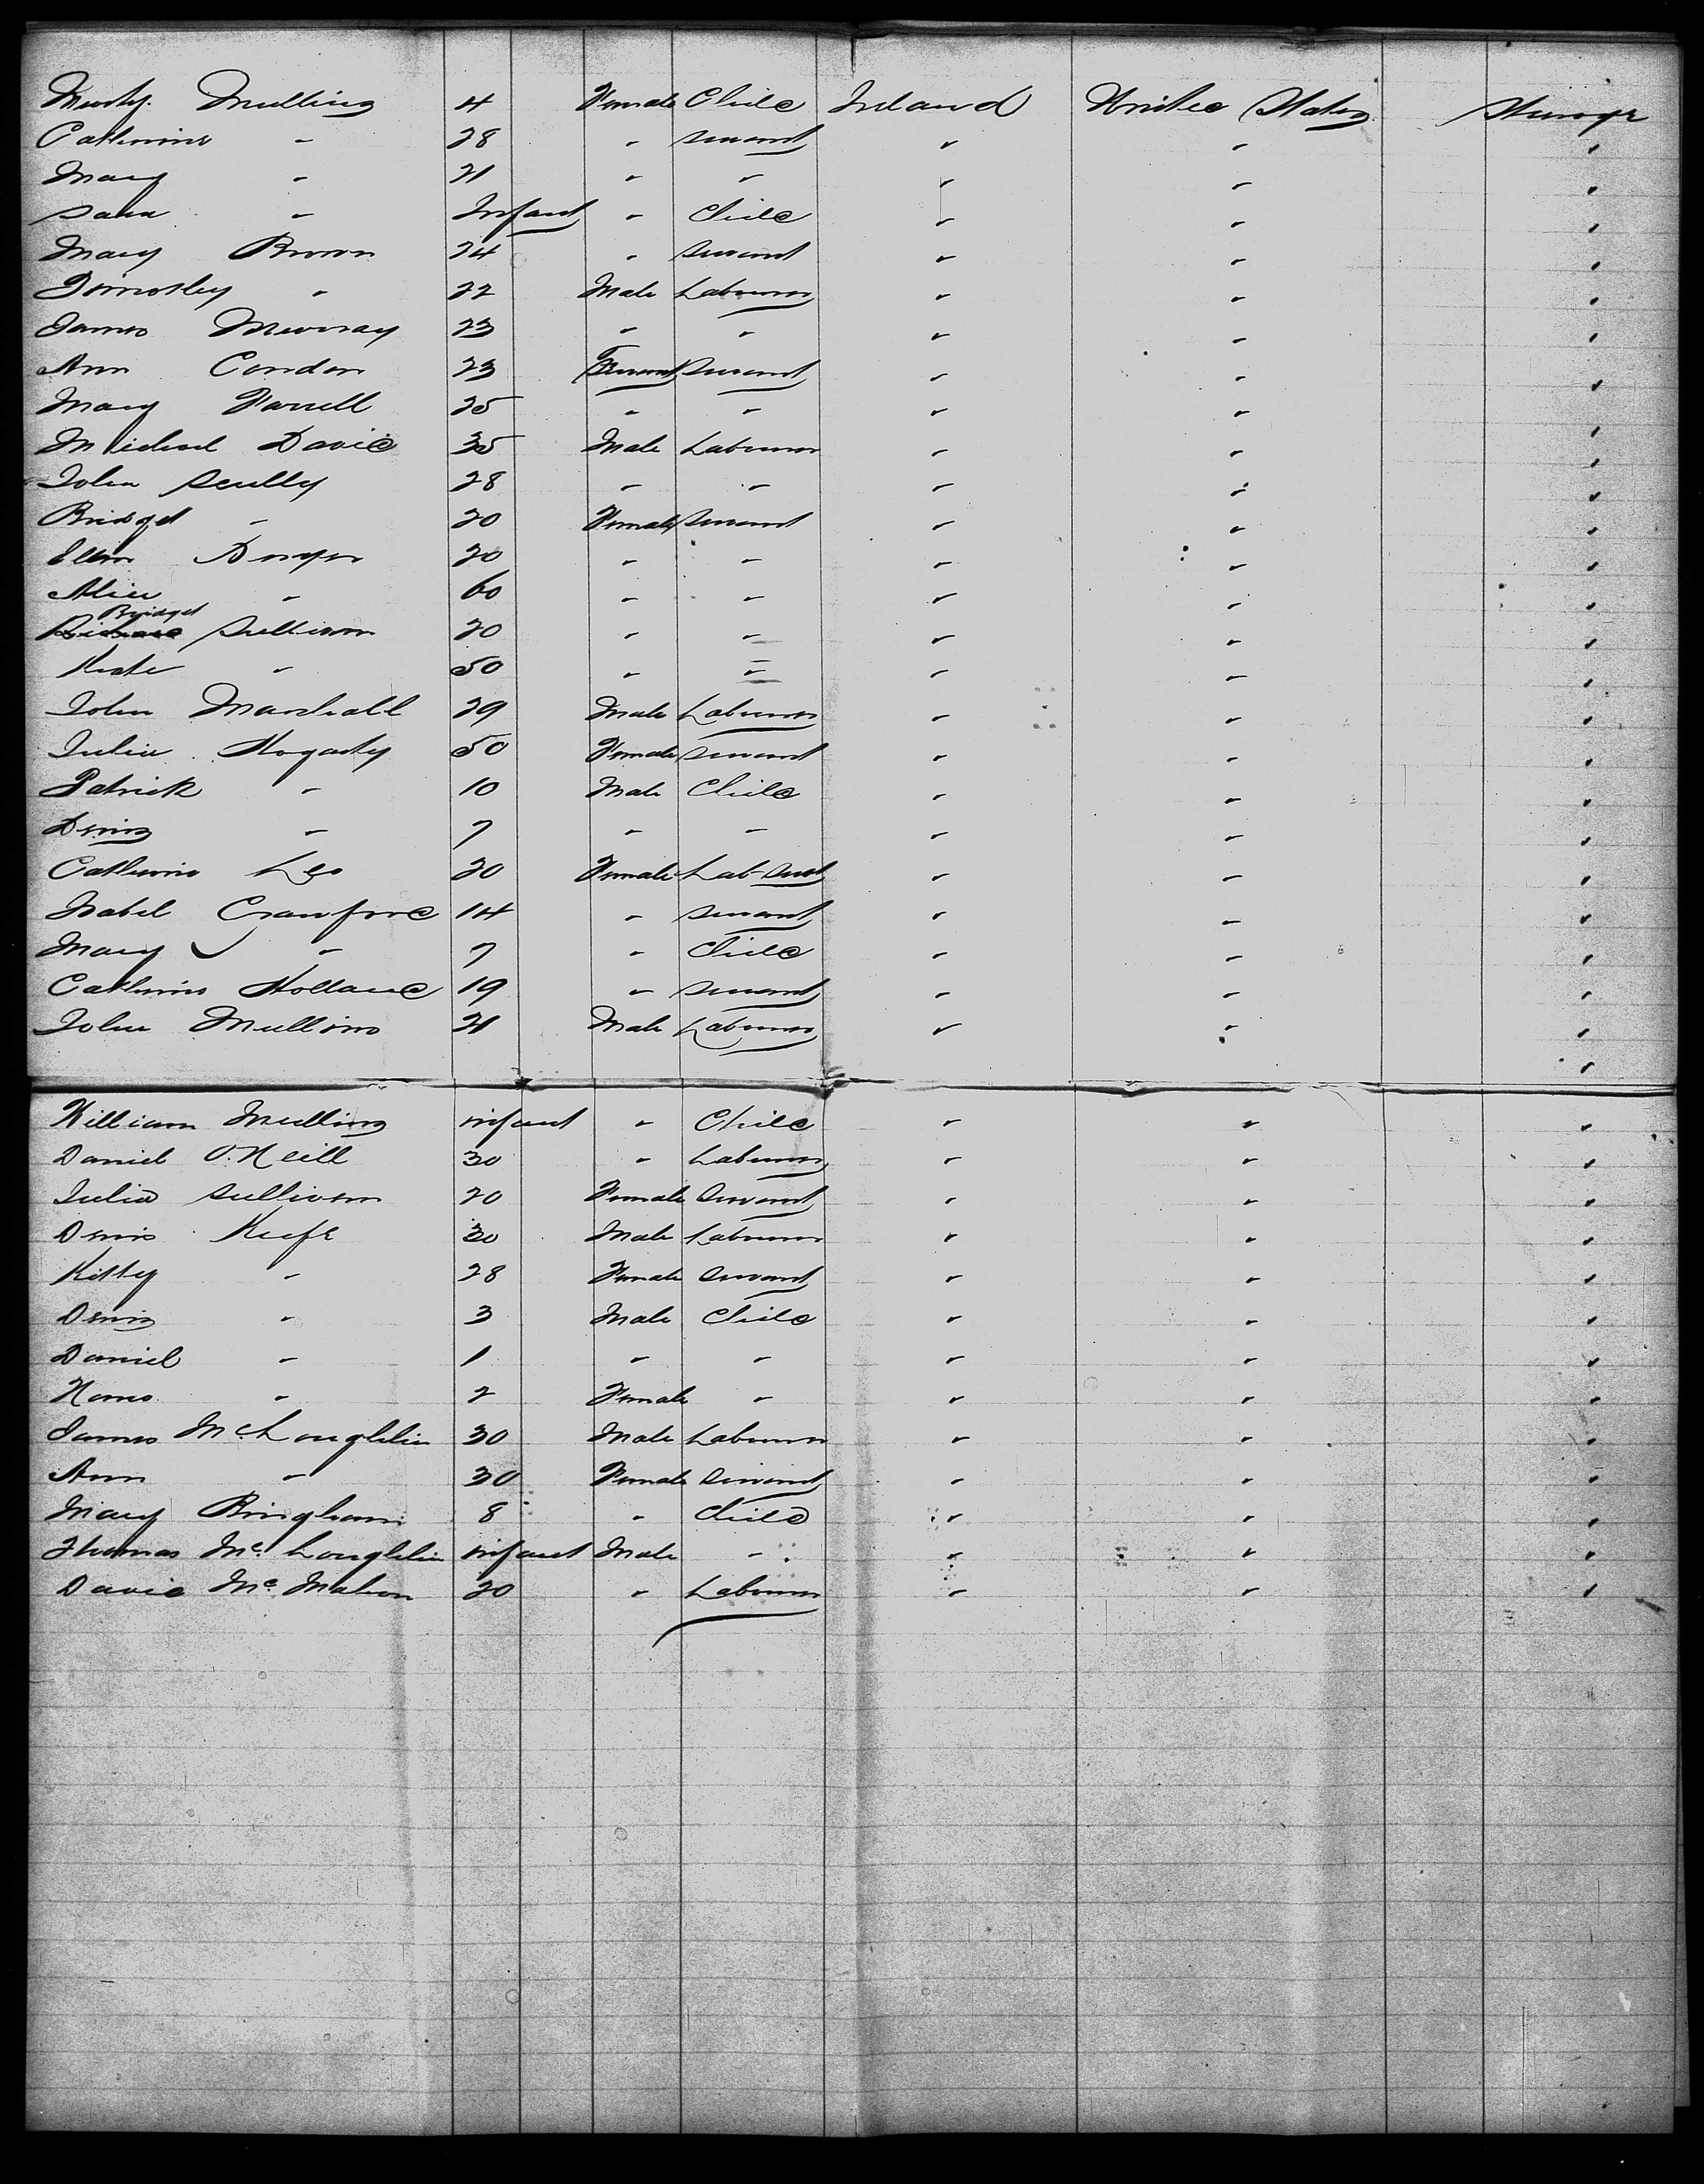 Mullins 4 Female Child Ireland United States Steerage
Catherine " 28 " Servant " " "
Mary " 21 " " " " "
" Infant " Child " " "
Mary Brown 24 " Servant " " "
Timothy " 22 Male Labourer " " "
James Murray 23 " " " " "
Ann Condon 23 Servant " " "
Mary Farrell 25 " " " " "
Michael David 35 Male Labourer " " "
John Scully 28 " " " " "
Bridget " 20 Female Servant " " "
Ellen 20 " " " " "
Alice " 60 " " " " "
Bridget Sullivan 20 " " " " "
Kate " 50 " " " " "
John Marshall 29 Male Labourer " " "
Julia Hogarty 50 Female Servant " " "
Patrick " 10 Male Child " " "
Denis " 7 " " " " "
Catherine Leo 20 Female " " "
Isabel Crawford 14 " Servant " " "
Mary " 7 " Child " " "
Catherine Holland 19 " Servant " " "
John Mullins 21 Male Labourer " " "
William Mullins infant " Child " " "
Daniel O.Neill 30 " Labourer " " "
Julia Sullivan 20 Female Servant " " "
Denis Keefe 30 Male Labourer " " "
Kitty " 28 Female Servant " " "
Denis " 3 Male Child " " "
Daniel " 1 " " " " "
" 2 Female " " " "
James McLoughlin 30 Male Labourer " " "
Ann " 30 Female Servant " " "
Mary Bingham 8 " Child " " "
Thomas Mc.Loughlin infant Male " " " "
David Mc.Mahon 20 " Labourer " " "